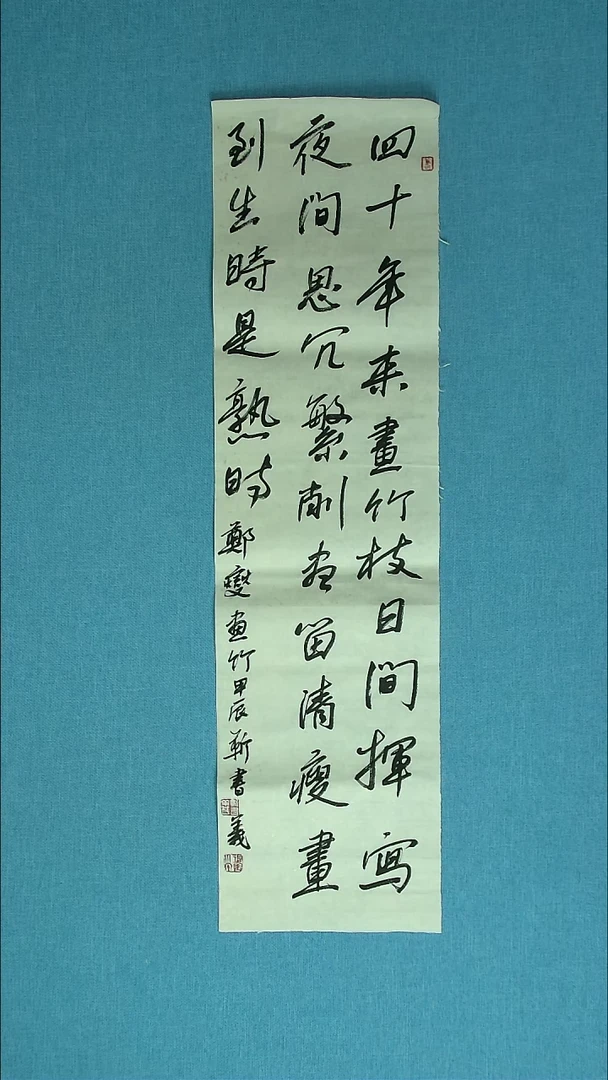 四十年来畫竹枝日間揮寫
夜間思冗繁削盡留清瘦畫
到生時是熟時鄭燮畫竹甲辰靳書義